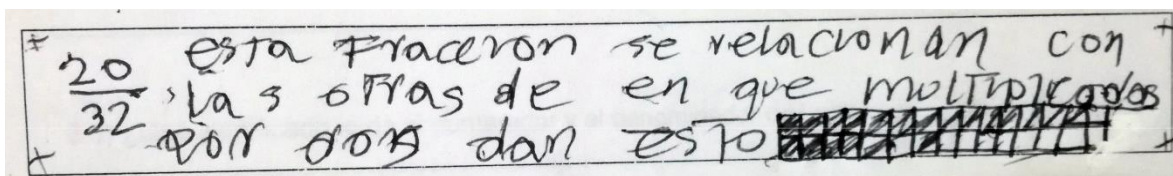 esta Fraceron se relacionan con
20/32 las otras de en que multiplicados
por dos dan esto